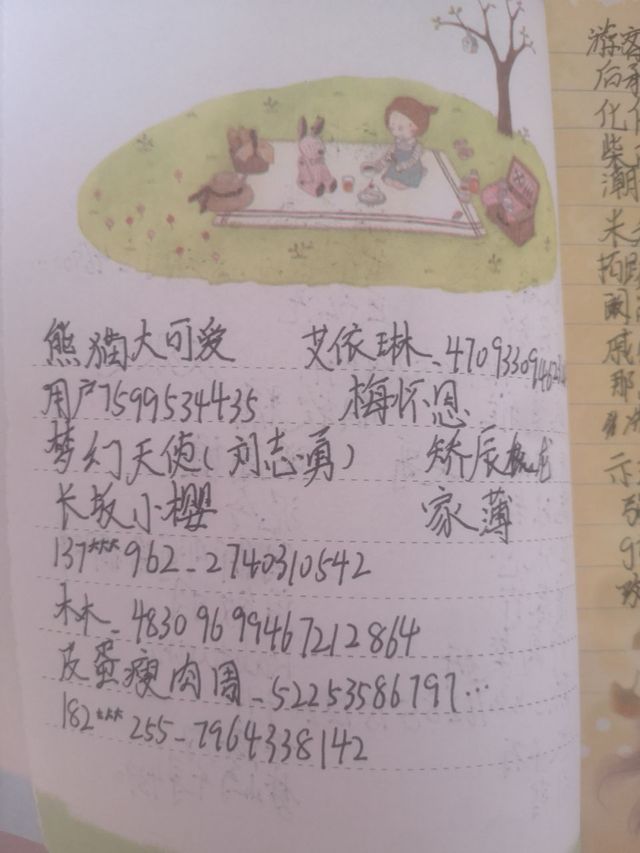 熊猫大可爱 艾依琳_4709330946
用户7599534435 梅怀恩
梦幻天使(刘志勇) 矫辰
长坂小樱 家薄
137***962_2740310542
木木_4830969946721286​4
皮蛋瘦肉周_52253586797…
182***255_7964338142
游
后
化
柴
潮
米
拓
阑
戚
那
示